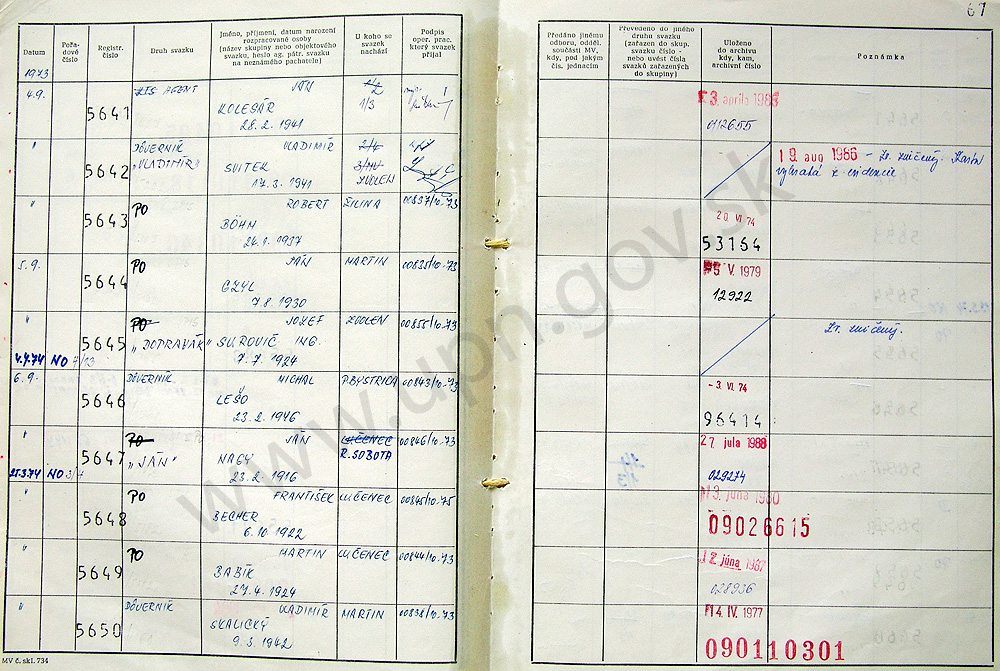 67
Datum
Pořa-
dové
číslo
Registr.
číslo
Druh svazku
Jméno, příjmení, datum narození
rozpracované osoby
(název skupiny nebo objektového
svazku, heslo ag. pátr. svazku
na neznámého pachatele)
U koho se
svazek
nachází
Podpis
oper. prac.
který svazek
přijal
Předáno jinému
odboru, odděl.
součásti MV,
kdy, pod jakým
čís. jednacím
Převedeno do jiného
druhu svazku
(zařazen do skup.
svazku číslo -
nebo uvést čísla
svazků zařazených
do skupiny)
Uloženo
do archivu
kdy, kam,
archivní číslo
Poznámka
1973
4.9. 5641 AGENT JÁN
KOLESÁR 1/3
28.2. 1941
3. apríla 1986
0112655
" 5642 DÔVERNÍK VLADIMÍR
"VLADIMÍR" SVITEK
17.3. 1941 ZVOLEN
19. aug 1986 - Zv. zničený. Karta
vybratá z evidencie
" 5643 PO ROBERT ŽILINA 00837/10-73
BÖHN
26.1. 1937
20 VI 74
53164
5.9. 5644 PO JÁN MARTIN 00835/10-73
GZYL
7.8 1930
5 V. 1979
12922
" 5645 PO JOZEF ZVOLEN 00855/10-73
"DOPRAVÁK" SUROVIČ ING.
4.4.74 NO 7.7. 1924
Zv. zničený.
6.9. 5646 DÔVERNÍK MICHAL P.BYSTRICA 00843/10-73
LEŠO
23.2. 1946
-3. VI 74
96414
" 5647 PO JÁN LUČENEC 00846/10-73
"JÁN" NAGY R.SOBOTA
NO 23.2. 1916
27 júla 1988
029274
" 5648 PO FRANTIŠEK LUČENEC 00845/10-75
BECHER
6.10 1922
13. júna 1980
09026615
" 5649 PO MARTIN LUČENEC 00844/10-73
BABÍK
27.4. 1924
12. júna 1987
028936
" 5650 DÔVERNÍK VLADIMÍR MARTIN 00838/10-73
SKALICKÝ
9.3. 1942
14. IV. 1977
090110301
MV č. skl. 734
www.upn.gov.sk